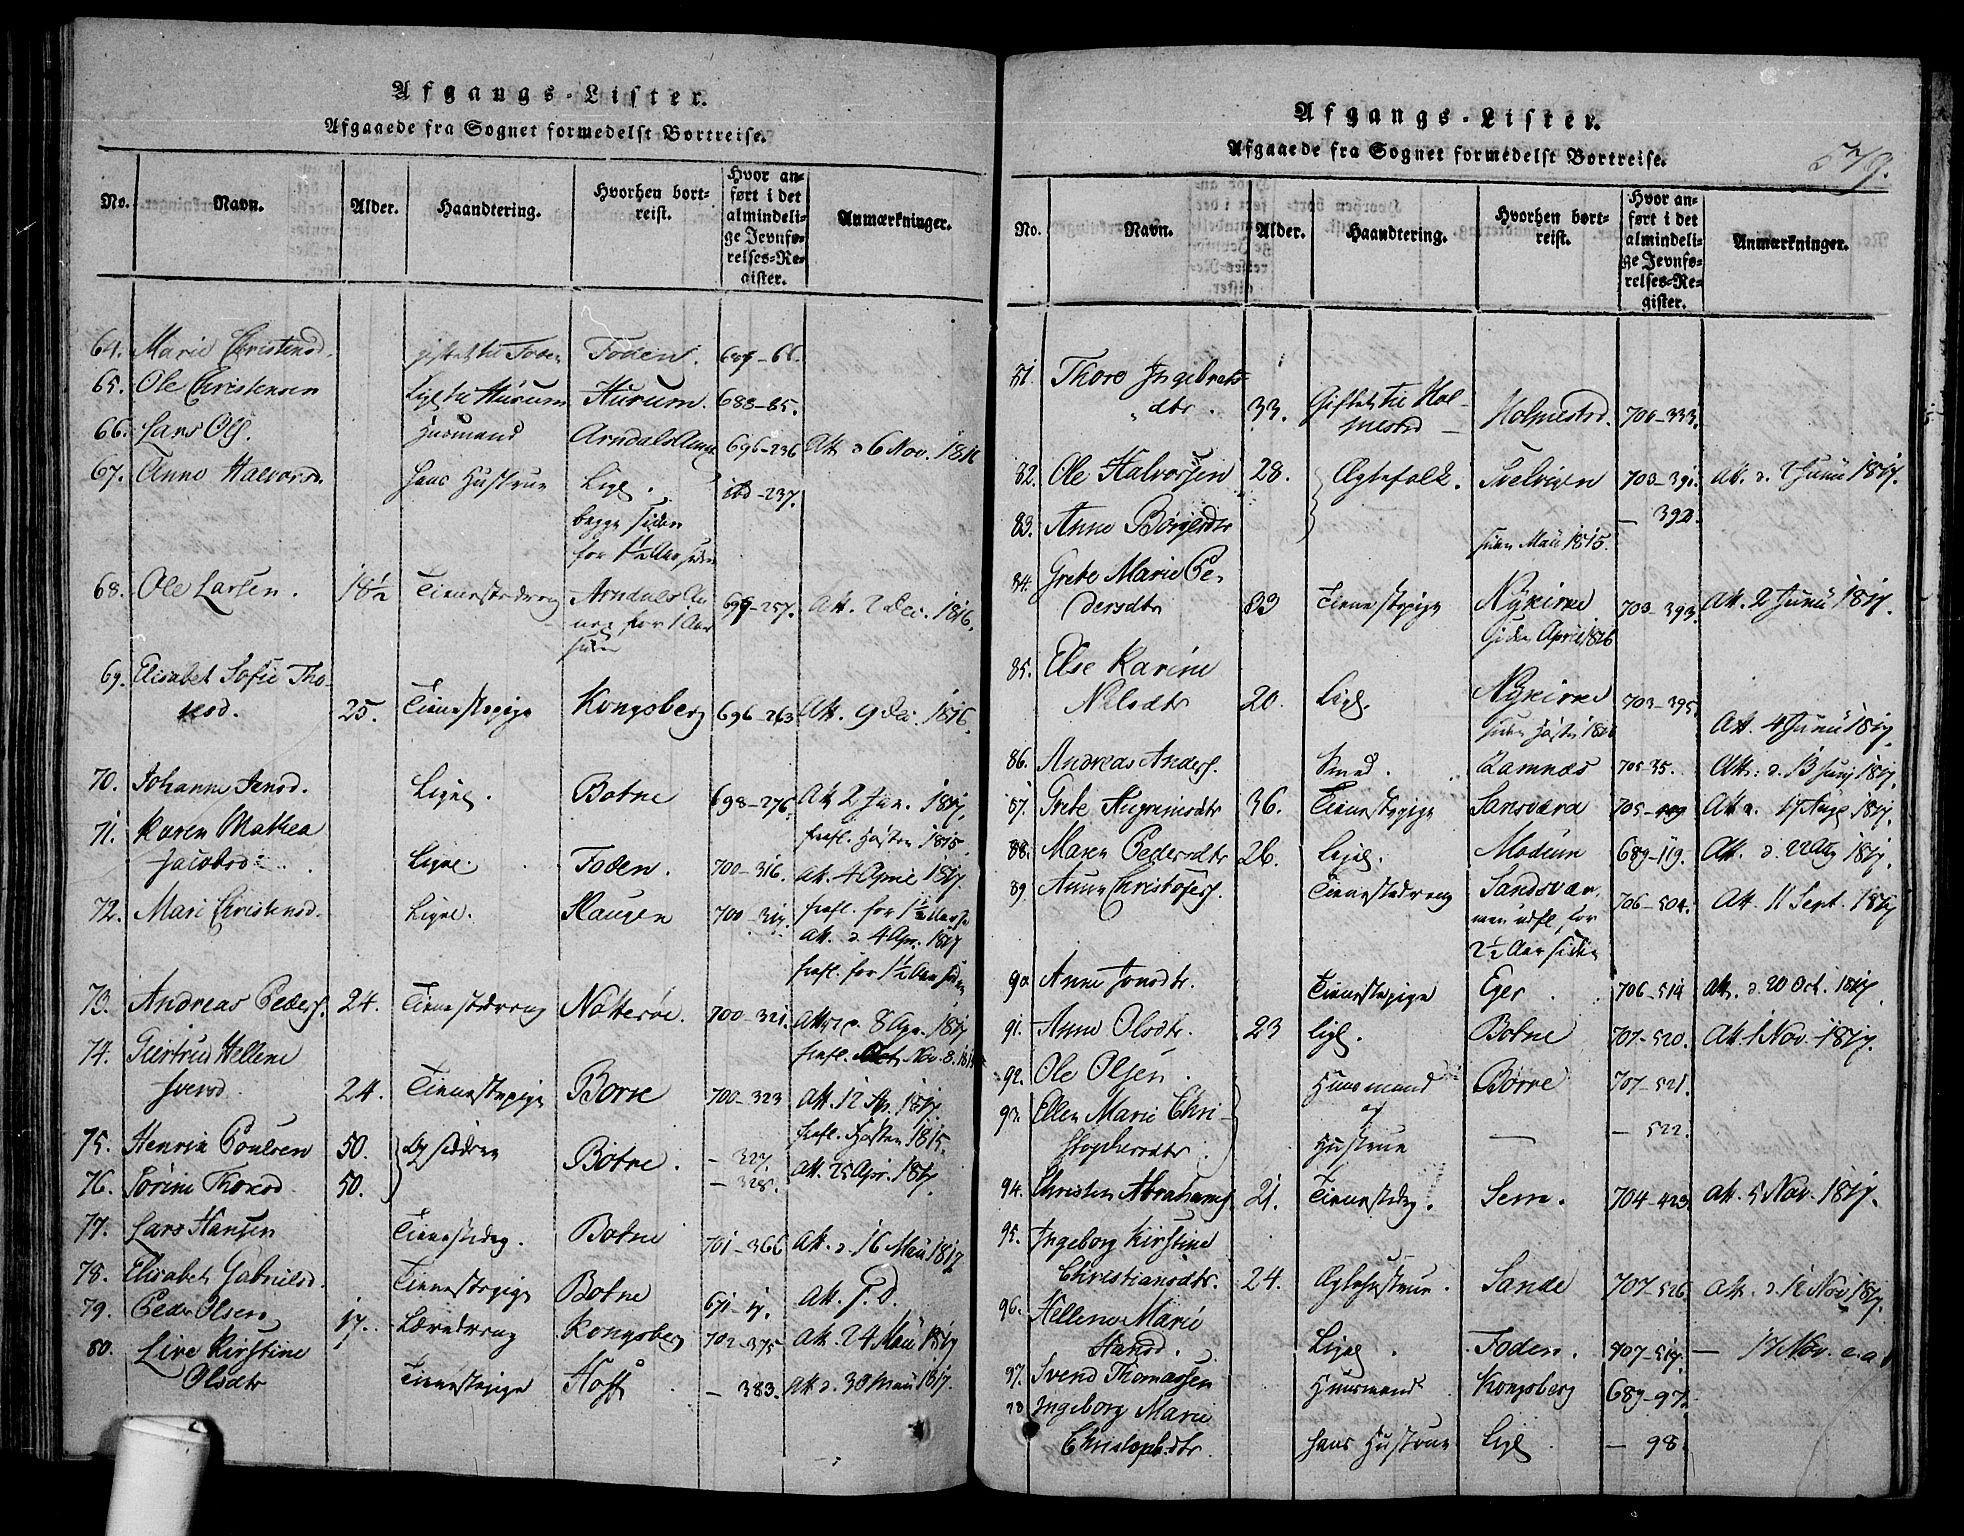 Afgangs-Lister.
Afgaaede fra Sognet formedelst Bortreise.
No. Navn. Alder. Haandtering. Hvorhen bortreist. Hvor anført i det almindelige Jevnførelses-Register. Anmærkninger.
64. Marie Christensd. giftet til Foden Foden. 66
65. Ole Christensen Ligl. til Hurum Hurum. 688-85.
66. Lars Ols. Huusmand Arndals 696-236 Att. d 6 Nov. 1816
67. Anne Halvorsd. hans Hustrue Ligl. ibd-237.
begge siden
for 1½ Aar siden
68. Ole Larsen. 18½ Tienestedreng Arndals 257. Att. 2 Dec. 1816.
for 1 Aar
siden
69. Elisabet Sofie Tho-
resd. 25. Tienestepige Kongsberg 696-263 Att. 9 Dec. 1816.
70. Johanne Jensd. Ligel. Botne 698-276. Att 2 Jan. 1817.
frafl. Høsten 1815.
71. Karen Mathea
Jacobsd. Ligel. Foden. 700-316. Att. 4 April 1817.
frafl. for 1½ Aar s.
72. Mari Christensd. Ligel. Haugen 700-317. Att. d. 4 Apr. 1817
frafl. for 1½ Aar siden
73. Andreas Peders. 24. Tienestedreng Nøtterøe. 700-321. Att. d. 8 Apr. 1817
frafl. Nov. 8.
74. Giertrud Hellene
Iversd. 24. Tienestepige Borre 700-323 Att. 12 Ap. 1817.
frafl. Høsten 1815.
75. Henrik Poulsen 50. Botne. - 327. Att. 25 Apr. 1817.
76. Sørine Thoresd. 50. - 328.
77. Lars Hansen Tienestedrg. Botne 701-366 Att. d. 16 Maii 1817
78. Elisabet Gabrielsd. Tienestepige Botne 671-17. Att. T. D.
79. Peder Olsen 17. Læredreng Kongsberg 702-375 Att. 24 Maii 1817
80. Live Kirstine
Olsdtr Tienestepige Hoff - 383. Att d. 30 Maii 1817.
Afgangs-Lister.
Afgaaede fra Sognet formedelst Bortreise.
579.
No. Navn. Alder. Haandtering. Hvorhen bortreist. Hvor anført i det almindelige Jevnførelses-Register. Anmærkninger.
81. Thore Ingebrets-
dtr. 33. Giftet til Hol-
mestrd Holmestrd. 700-333.
82. Ole Halvorsen 28. Ægtefolk. Svelvigen 703-391. Att. d. 2 Junii 1817.
83. Anne Børgesdtr - 392.
siden Maii 1815.
84. Grete Marie Pe-
dersdtr 33 Tienestepige Nykirke 703-393. Att. 2 Junii 1817.
siden April 1816
85. Else Karine
Nilsdtr 20. Ligl. Nykirke 703-395.
siden Høsten 1816 Att. 4 Junii 1817.
86. Andreas Anders. Smed. Ramnæs 705-35. Att. d. 13 Junj 1817.
87. Grete Asgrimsdtr 36. Tienestepige Sansværd 705- Att. 17 Aug 1817.
88. Maren Pedersdtr 26. Ligel. Modum 689-119. Att. d. 22 Aug 1817.
89. Anne Christofers. Tienestedreng Sandsvær. 706-504. Att. 11 Sept. 1817
men udfl. for
2½ Aar siden
90 Anne Jonsdtr. Tienestepige Eger 706-514 Att. d. 20 Oct. 1817.
91. Anne Olsdtr. 23 Ligl. Botne 707-520. Att. 1 Nov. 1817.
92. Ole Olsen. Huusmand Borre 707-521.
og
93. Ellen Marie Chri-
stophersdtr. Hustrue - 522.
94. Christen Abrahams. 21. Tienestedrg. Sem. 704-423 Att. 5 Nov. 1817.
95. Ingeborg Kirstine
Christiansdtr. 24. Ægtehustrue. Sande 707-526 Att. d. 16 Nov 1817.
96. Hellene Marie
Hansd. Ligel. Foden. 707-517. - 17 Nov. e. a.
97. Svend Thomassen Huusmand Kongsberg 689-97.
98 Ingeborg Marie
Christophdtr. hans Hustrue Ligl - 98.